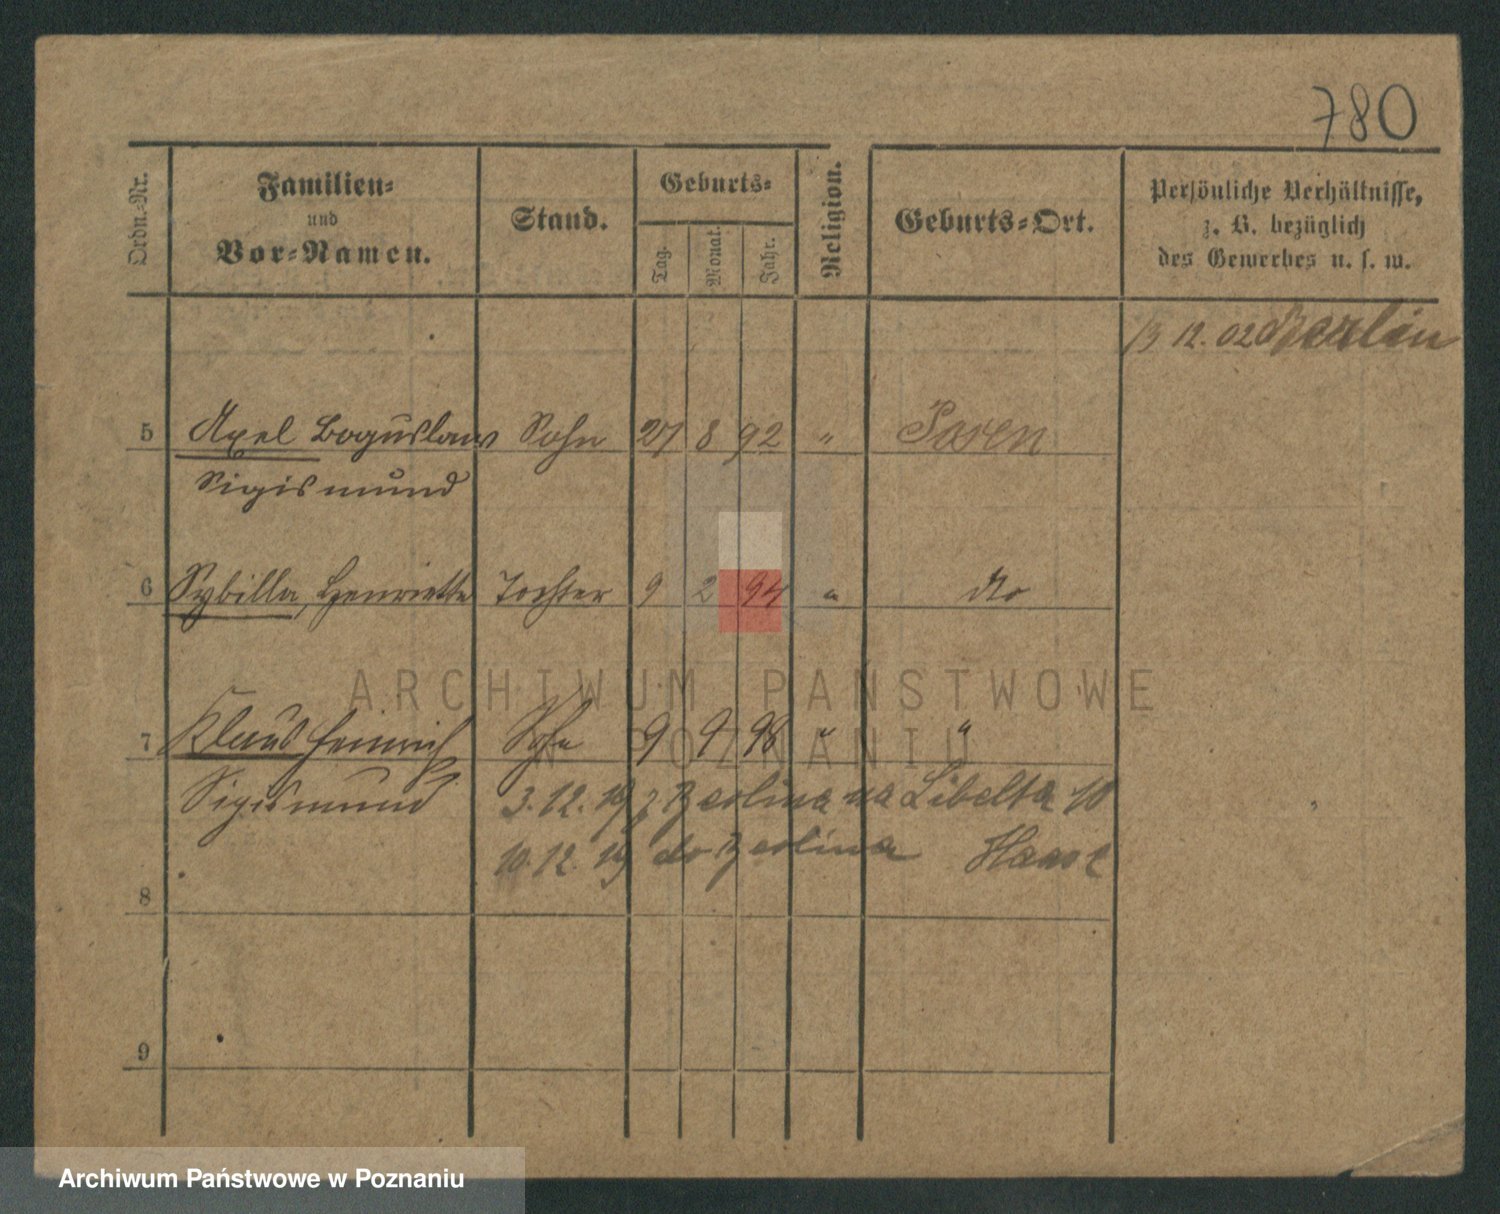 780
Ordn.-Nr.
Familien-
und
Vor-Namen.
Stand.
Geburts-
Tag.
Monat.
Jahr.
Religion.
Geburts-Ort.
Persönliche Verhältnisse,
z. B. bezüglich
des Gewerbes u. s. w.
13 12. 02 Berlin
5 Axel Boguslaw Sohn 27 8 92 " Posen
Sigismund
6 Sybilla, Henriette Tochter 9 2 94 " do
7 Klaus Heinrich Sohn 9 9 98 " "
Sigismund 3.12.19 z Berlina na Libelta 10
10.12.19 do Berlina
8
9
ARCHIWUM PAŃSTWOWE
W POZNANIU
Archiwum Państwowe w Poznaniu